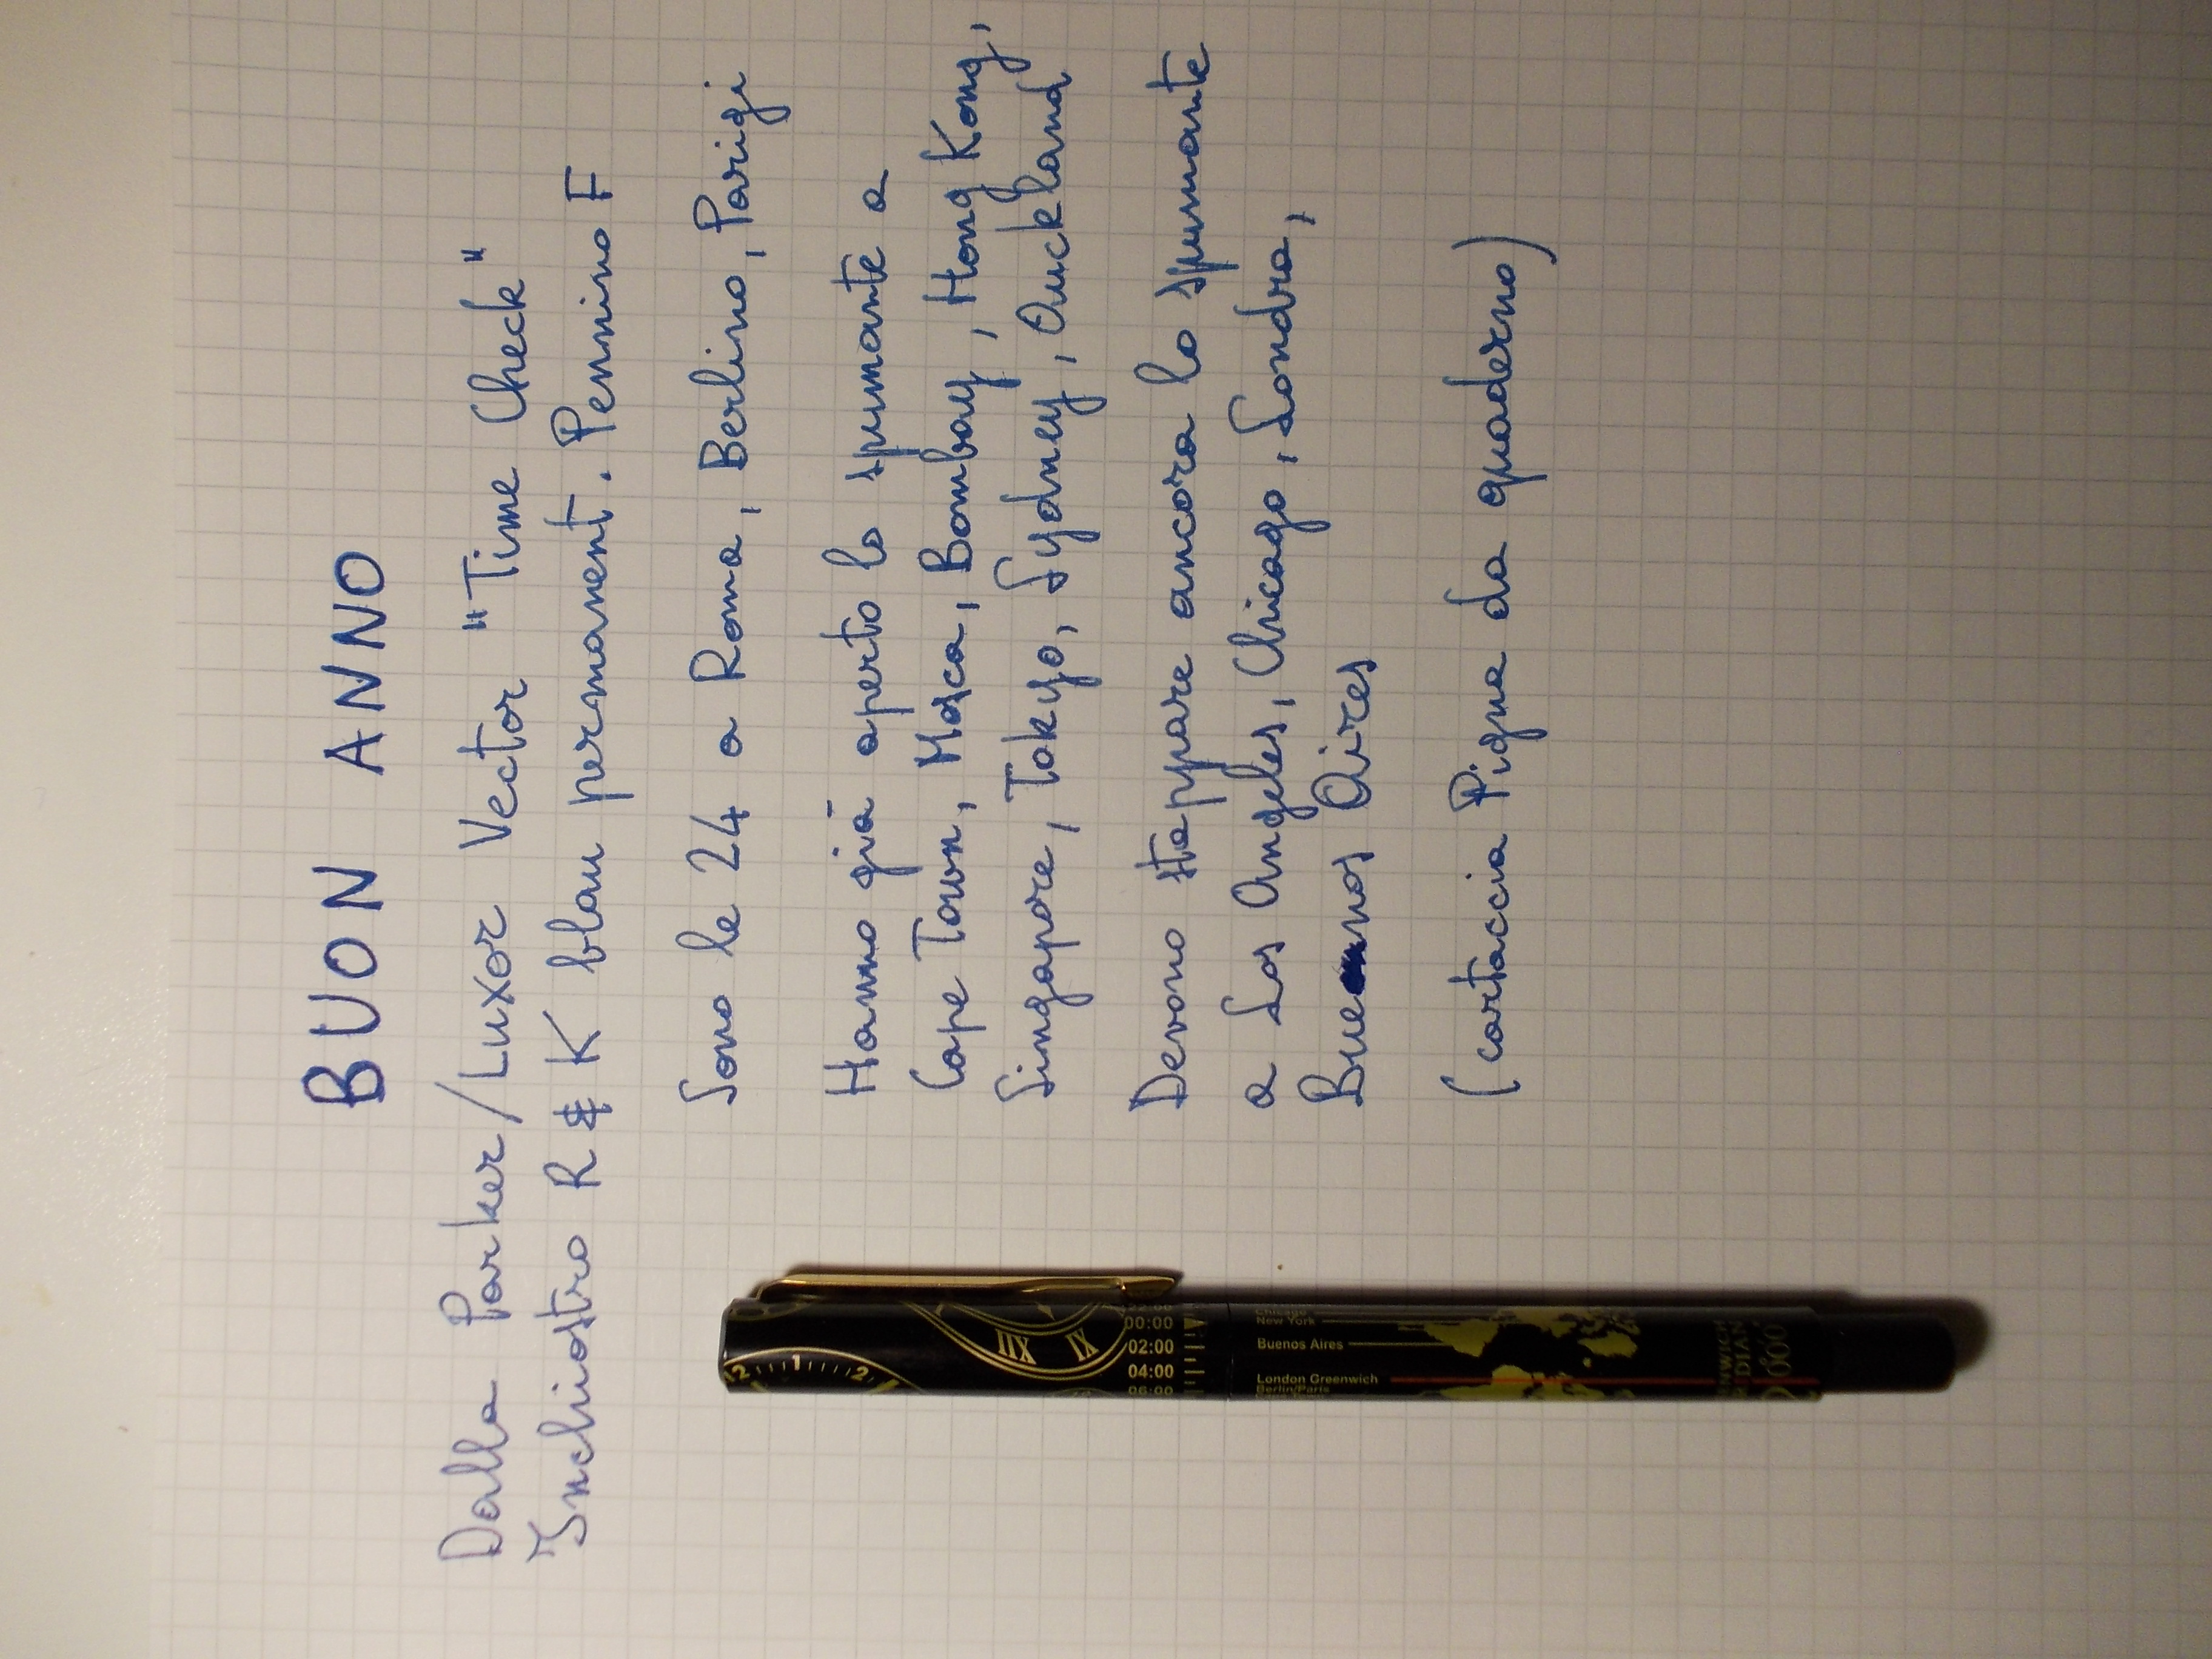 BUON ANNO
Dalla Parker/Luxor Vector "Time Check"
Inchiostro R & K blau permanent. Pennino F
Sono le 24 a Roma, Berlino, Parigi
Hanno già aperto lo spumante a
Cape Town, Mosca, Bombay, Hong Kong,
Singapore, Tokyo, Sydney, Auckland
Devono stappare ancora lo spumante
a Los Angeles, Chicago, Londra,
Buenos Aires
(cartaccia Pigna da quaderno)
12 1 2
XII XI
22:00
00:00
02:00
04:00
06:00
Chicago
New York
Buenos Aires
London Greenwich
Berlin/Paris